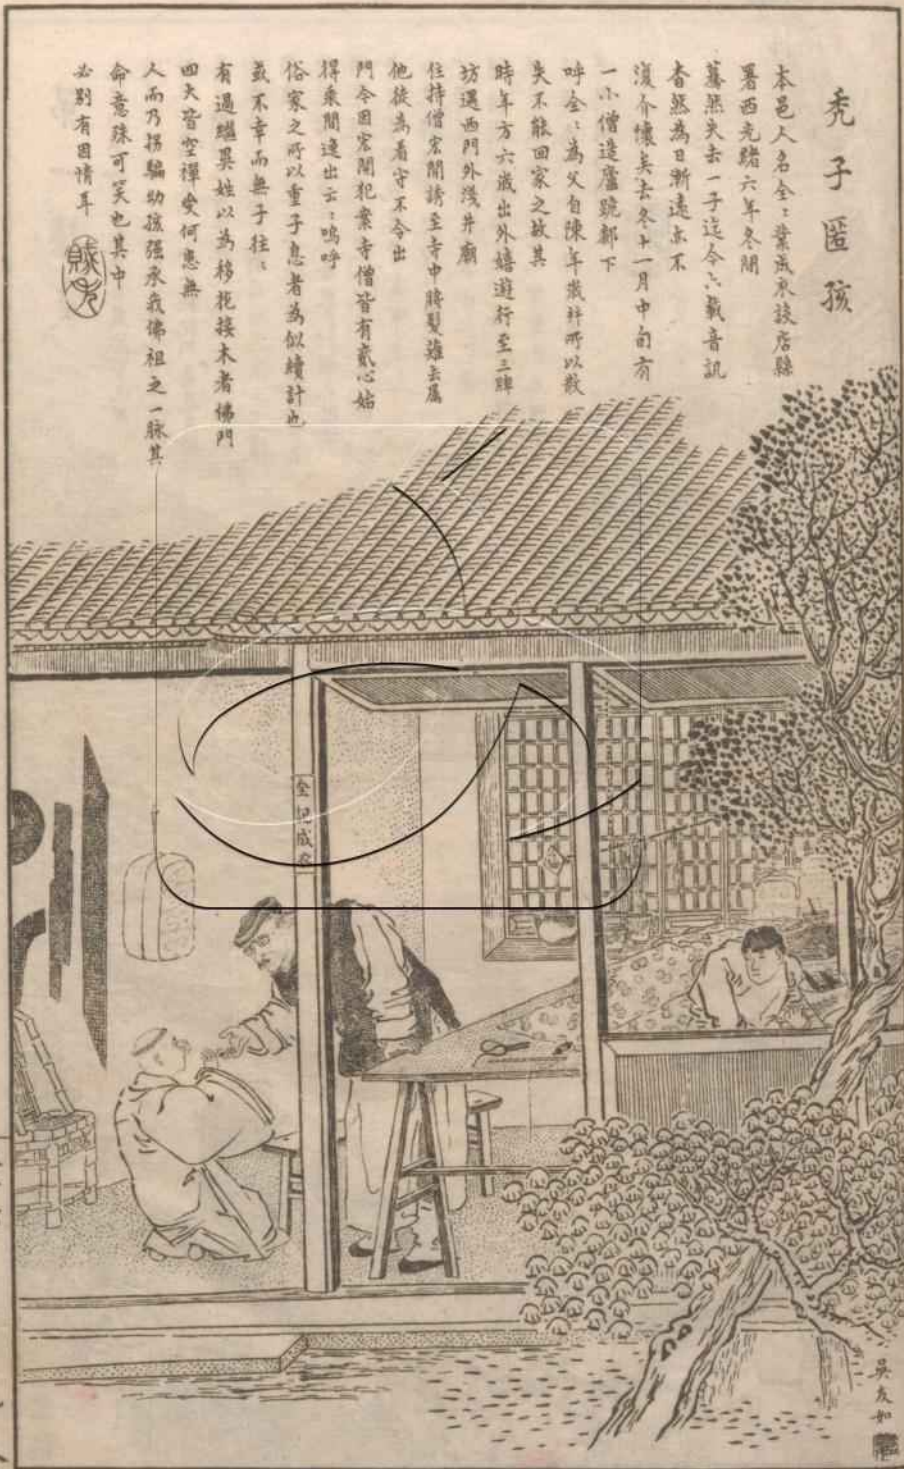 禿子匿孩
本邑人名全〻業成衣設店縣
署西光緒六年冬間
驀然失去一子迄今六載音訊
杳然為日漸遠亦不
復介懷矣去冬十一月中旬有
一小僧造廬跪鄰下
呼全〻為父自陳年歲幷所以散
失不能回家之故其
時年方六歲出外嬉遊行至三牌
坊遇西門外淺井廟
住持僧宏開誘至寺中將髮薙去屬
他徒為看守不令出
門今因宏開犯案寺僧皆有貳心始
得乘間逸出云〻嗚呼
俗家之所以重子息者為似續計也
或不幸而無子往〻
有過繼異姓以為移花接木者佛門
四大皆空禪門何患無
人而乃拐騙幼孩强承我佛祖之一脉其
命意殊可笑也其中
必別有因情耳
全記成衣
吳友如